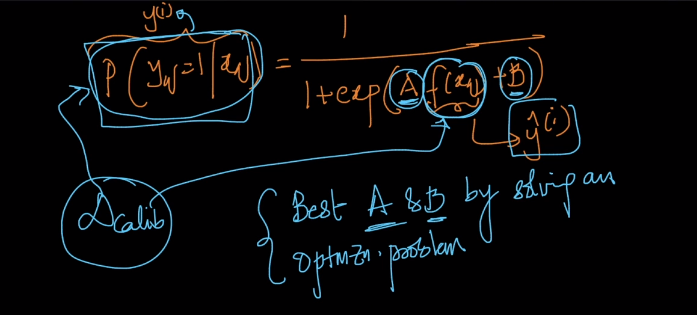 y(i)
P(y_q=1|x_q) = 1 / 1+exp(A f(x_q) + B)
ŷ(i)
D_Calib
Best A & B by solving an
optmzn. problem